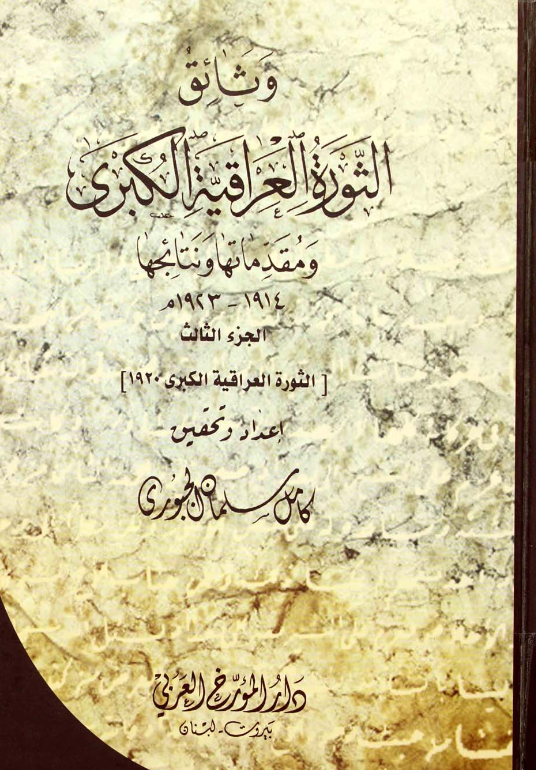 وَثَائِقُ
الثَّورَةُ العِرَاقيَّةِ الكُبْرَى
وَمُقَدِّمَاتهَا وَنَتَائجُها
١٩١٤ - ١٩٢٣م
الجزء الثالث
[الثورة العراقية الكبرى ١٩٢٠]
إعداد وتحقيق
كامل سلمان الجبوري
دَارُ المؤرّخ العَرَبيّ
بَيروت - لبنان